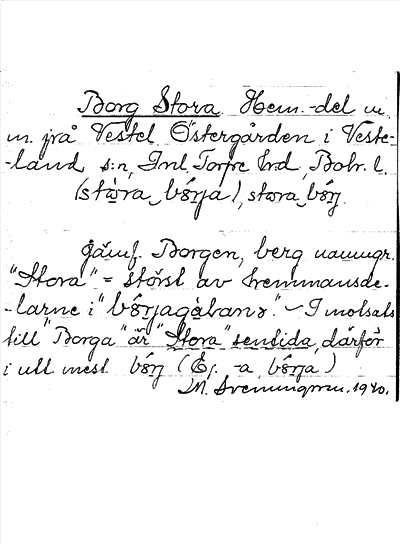 Borg Stora Hem.-del m
m. frå Vestel Östergården i Veste-
-land s:n, Inl. Torpe hrd, Boh. l.
(stωra bőrja), stωra bőrj.
Jämf. Borgen, berg namngr.
"Stora" = störst av hemmansde-
-larne i "bőrjagàlana." - I motsats
till "Borga" är "Stora" sensida, därför
i utt mest bőrj (Ej. -a, bőrja)
M. 1920.